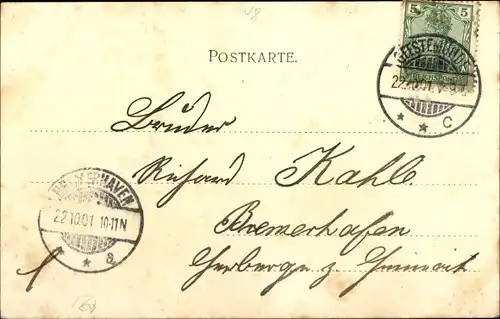 V8
5
POSTKARTE.
GEESTEMÜNDE
22.10.01
* * C
Bruder
Richard Kahle
Bremerhafen
Herberge z. Heimath
BREMERHAVEN
22.10.01 10-11N
* a.